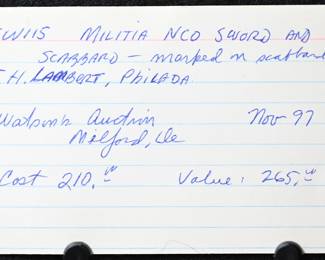 SW115 MILITIA NCO SWORD AND
SCABBARD — marked on scabbard
T.H. LAMBERT, PHILADA
Watson's Auction Nov 97
Milford, De
Cost 210.00 Value: 265.00